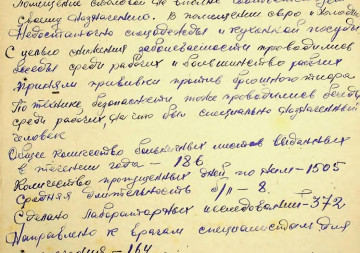 Помещение столовой не вполне соответствует
своему назначению. В помещении сыро и холодно
Недостаточно спецодежды и кухонной посуды
С целью снижения заболеваемости проводились
беседы среди рабочих и большинство рабочих
приняли прививки против брюшного тифа.
По технике безопасности тоже проводились беседы
среди рабочих, на что был специально назначенный
человек
Общее количество больничных листов выданных
в течении года — 186
Количество пропущенных дней по ним — 1505
Средняя длительность б/л — 8.
Сделано лабораторных исследований — 372.
Направлено к врачам специалистам для
— 164